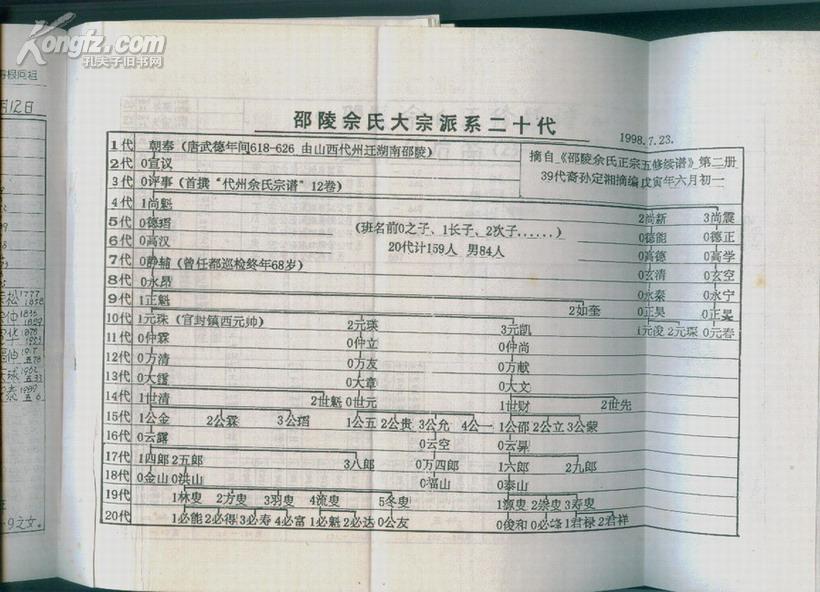 Kongfz.com
孔夫子旧书网
邵陵佘氏大宗派系二十代
1998.7.23.
摘自《邵陵佘氏正宗五修续谱》第二册
39代裔孙定湘摘编戊寅年六月初一
1代 朝奉(唐武德年间618-626 由山西代州迁湖南邵陵)
2代 0宣议
3代 0评事(首撰“代州佘氏宗谱”12卷)
4代 1尚魁 2尚新 3尚震
5代 0德瑨 (班名前0之子、1长子、2次子......) 0德能 0德正
6代 0高汉 20代计159人 男84人 0高德 0高学
7代 0静辅(曾任都巡检终年68岁) 0玄清 0玄空
8代 0永昂 0永秦 0永宁
9代 1正魁 2如奎 0正昊 0正旻
10代 1元珠(官封镇西元帅) 2元瑛 3元凯 1元俊 2元琛 0元春
11代 0仲霖 0仲立 0仲尚
12代 0万清 0万友 0万献
13代 0大 0大章 0大文
14代 1世清 2世魁 0世元 1世财 2世先
15代 1公金 2公霖 3公瑨 1公五 2公贵 3公允 4公一 1公邵 2公立 3公蒙
16代 0云露 0云空 0云昇
17代 1四郎 2五郎 3八郎 0万四郎 1六郎 2九郎
18代 0金山 0洪山 0福山 0泰山
19代 1林叟 2方叟 3羽叟 4流叟 5冬叟 1源叟 2崇叟 3寿叟
20代 1必能 2必得 3必寿 4必富 1必魁 2必达 0公友 0俊和 0必 1君禄 2君祥
寻根同祖
月12日